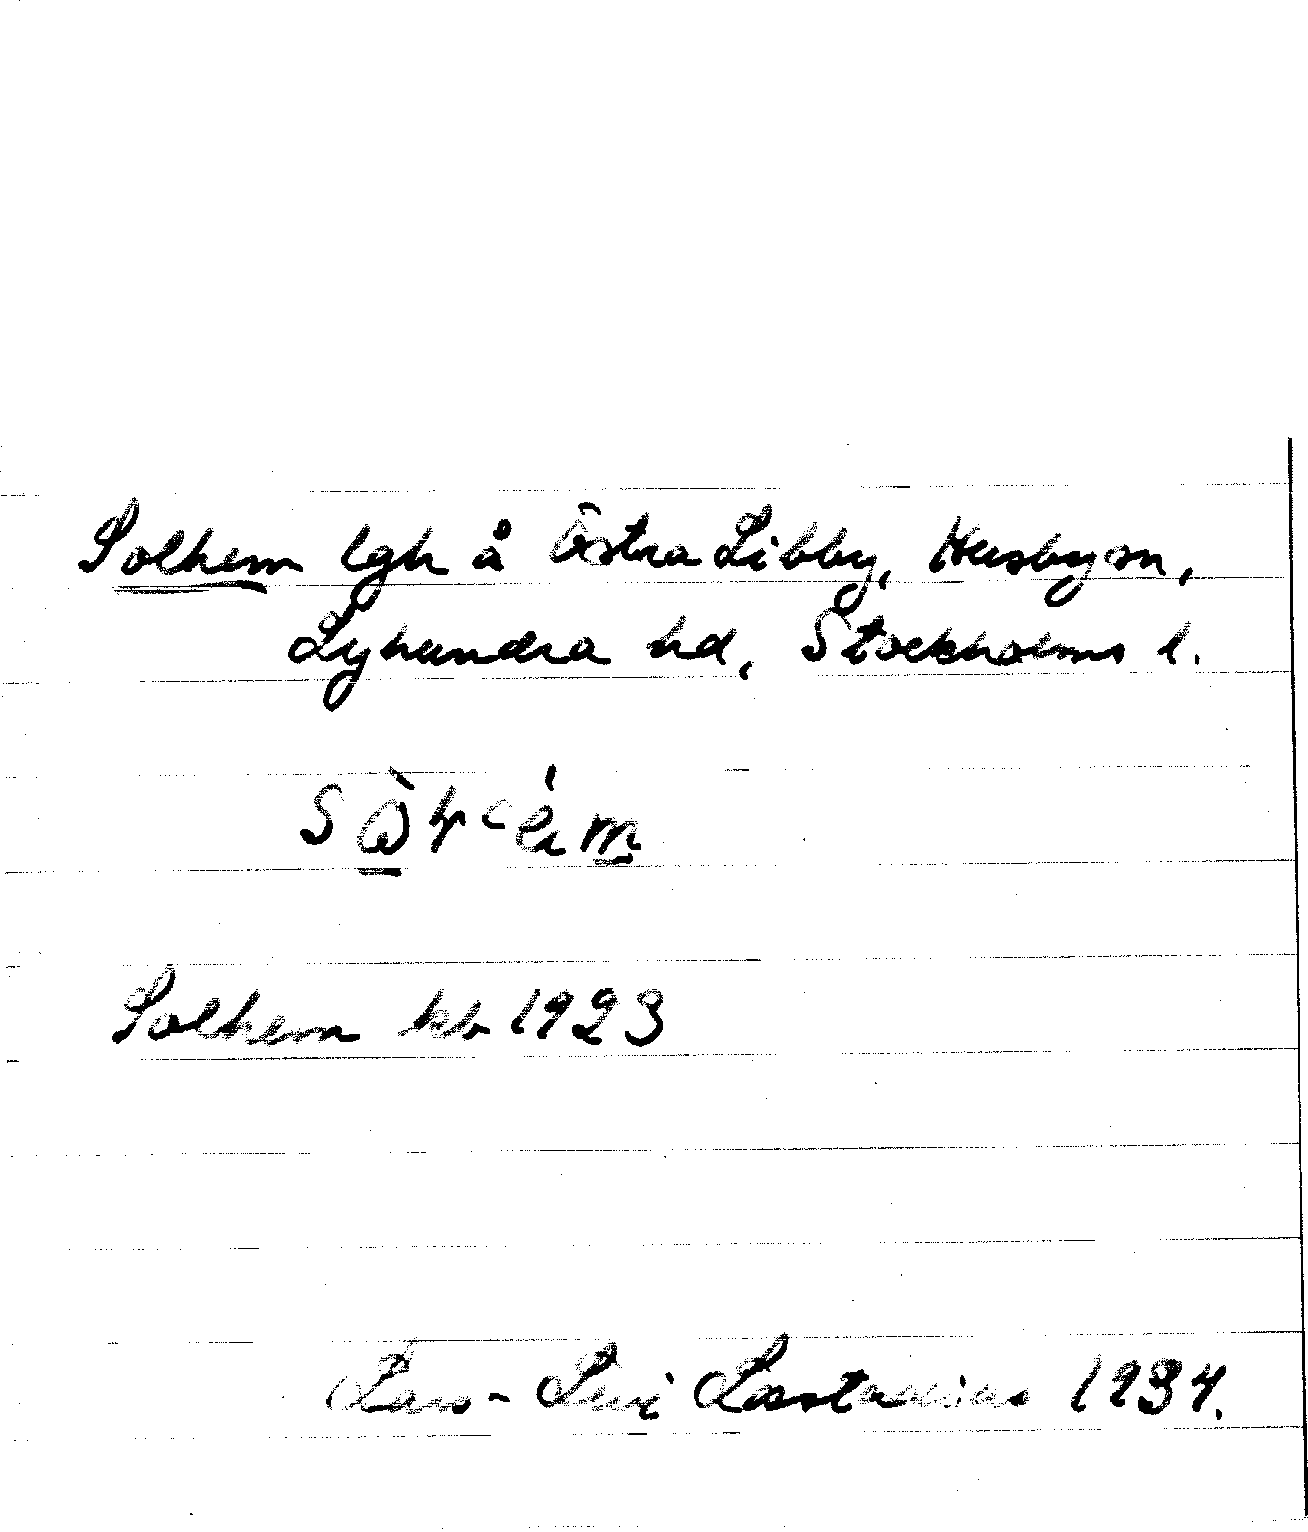 Solhem lgh å Östra Libby, Husby sn,
Lyhundra hd, Stockholms l.
Solhem kb 1923
Lars-Levi Læstadius 1934.